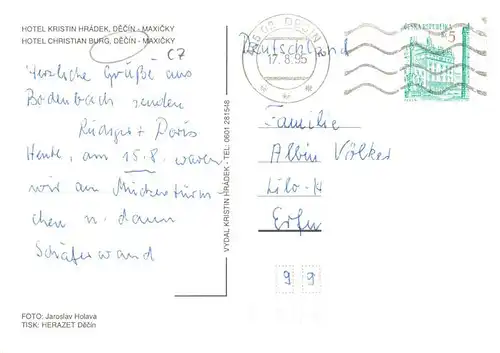 HOTEL KRISTIN HRÁDEK, DĚČÍN - MAXIČKY
HOTEL CHRISTIAN BURG, DĚČÍN - MAXIČKY
Herzliche Grüße aus
Bodenbach senden
Rüdiger + Doris
Heute, am 15.8. waren
wir am Mückentürm-
chen u. dann
Schäferwand
FOTO: Jaroslav Holava
TISK: HERAZET Děčín
VYDAL KRISTIN HRÁDEK - TEL: 0601 281548
Deutschland
DĚČÍN
17.8.95
ČESKÁ REPUBLIKA
5
Familie
Albin Völker
99